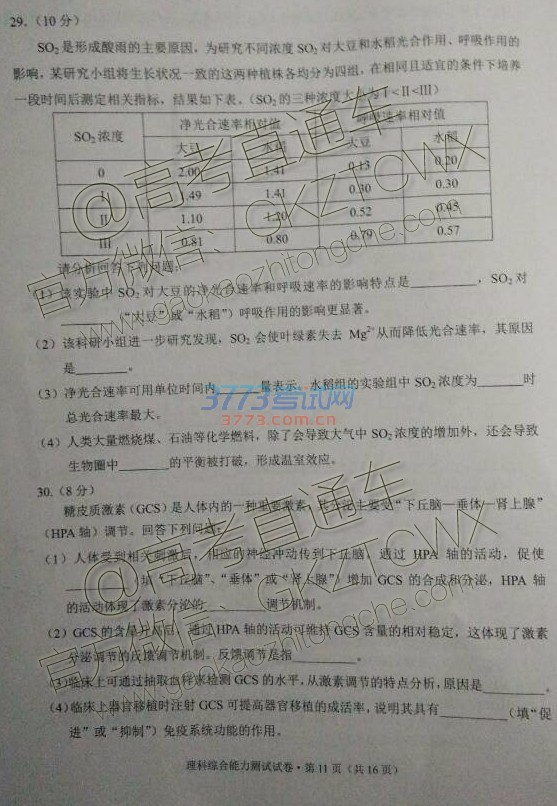 29.（10 分）
SO₂ 是形成酸雨的主要原因，为研究不同浓度 SO₂ 对大豆和水稻光合作用、呼吸作用的
影响，某研究小组将生长状况一致的这两种植株各均分为四组，在相同且适宜的条件下培养
一段时间后测定相关指标，结果如下表。（SO₂ 的三种浓度大小为 I<II<III）
SO₂ 浓度 净光合速率相对值 呼吸速率相对值
大豆 水稻 大豆 水稻
0 2.00 1.41 0.13 0.20
I 1.49 1.41 0.30 0.30
II 1.10 1.20 0.52 0.43
III 0.81 0.80 0.79 0.57
请分析回答下列问题：
（1）该实验中 SO₂ 对大豆的净光合速率和呼吸速率的影响特点是________，SO₂ 对
________（“大豆”或“水稻”）呼吸作用的影响更显著。
（2）该科研小组进一步研究发现，SO₂ 会使叶绿素失去 Mg²⁺从而降低光合速率，其原因
是________。
（3）净光合速率可用单位时间内________量表示，水稻组的实验组中 SO₂ 浓度为________时
总光合速率最大。
（4）人类大量燃烧煤、石油等化学燃料，除了会导致大气中 SO₂ 浓度的增加外，还会导致
生物圈中________的平衡被打破，形成温室效应。
30.（8 分）
糖皮质激素（GCS）是人体内的一种重要激素，其分泌主要受“下丘脑—垂体—肾上腺”
（HPA 轴）调节。回答下列问题：
（1）人体受到相关刺激后，相应的神经冲动传到下丘脑，通过 HPA 轴的活动，促使
________（填“下丘脑”、“垂体”或“肾上腺”）增加 GCS 的合成和分泌，HPA 轴
的活动体现了激素分泌的________调节机制。
（2）GCS 的含量升高后，通过 HPA 轴的活动可维持 GCS 含量的相对稳定，这体现了激素
分泌调节的反馈调节机制。反馈调节是指________。
（3）临床上可通过抽取血样来检测 GCS 的水平，从激素调节的特点分析，原因是________。
（4）临床上器官移植时注射 GCS 可提高器官移植的成活率，说明其具有________（填“促
进”或“抑制”）免疫系统功能的作用。
理科综合能力测试试卷·第 11 页（共 16 页）
@高考直通车
官方微信：GKZTCWX
www.gaokaozhitongche.com
3773考试网
3773.com.cn
@高考直通车
官方微信：GKZTCWX
www.gaokaozhitongche.com